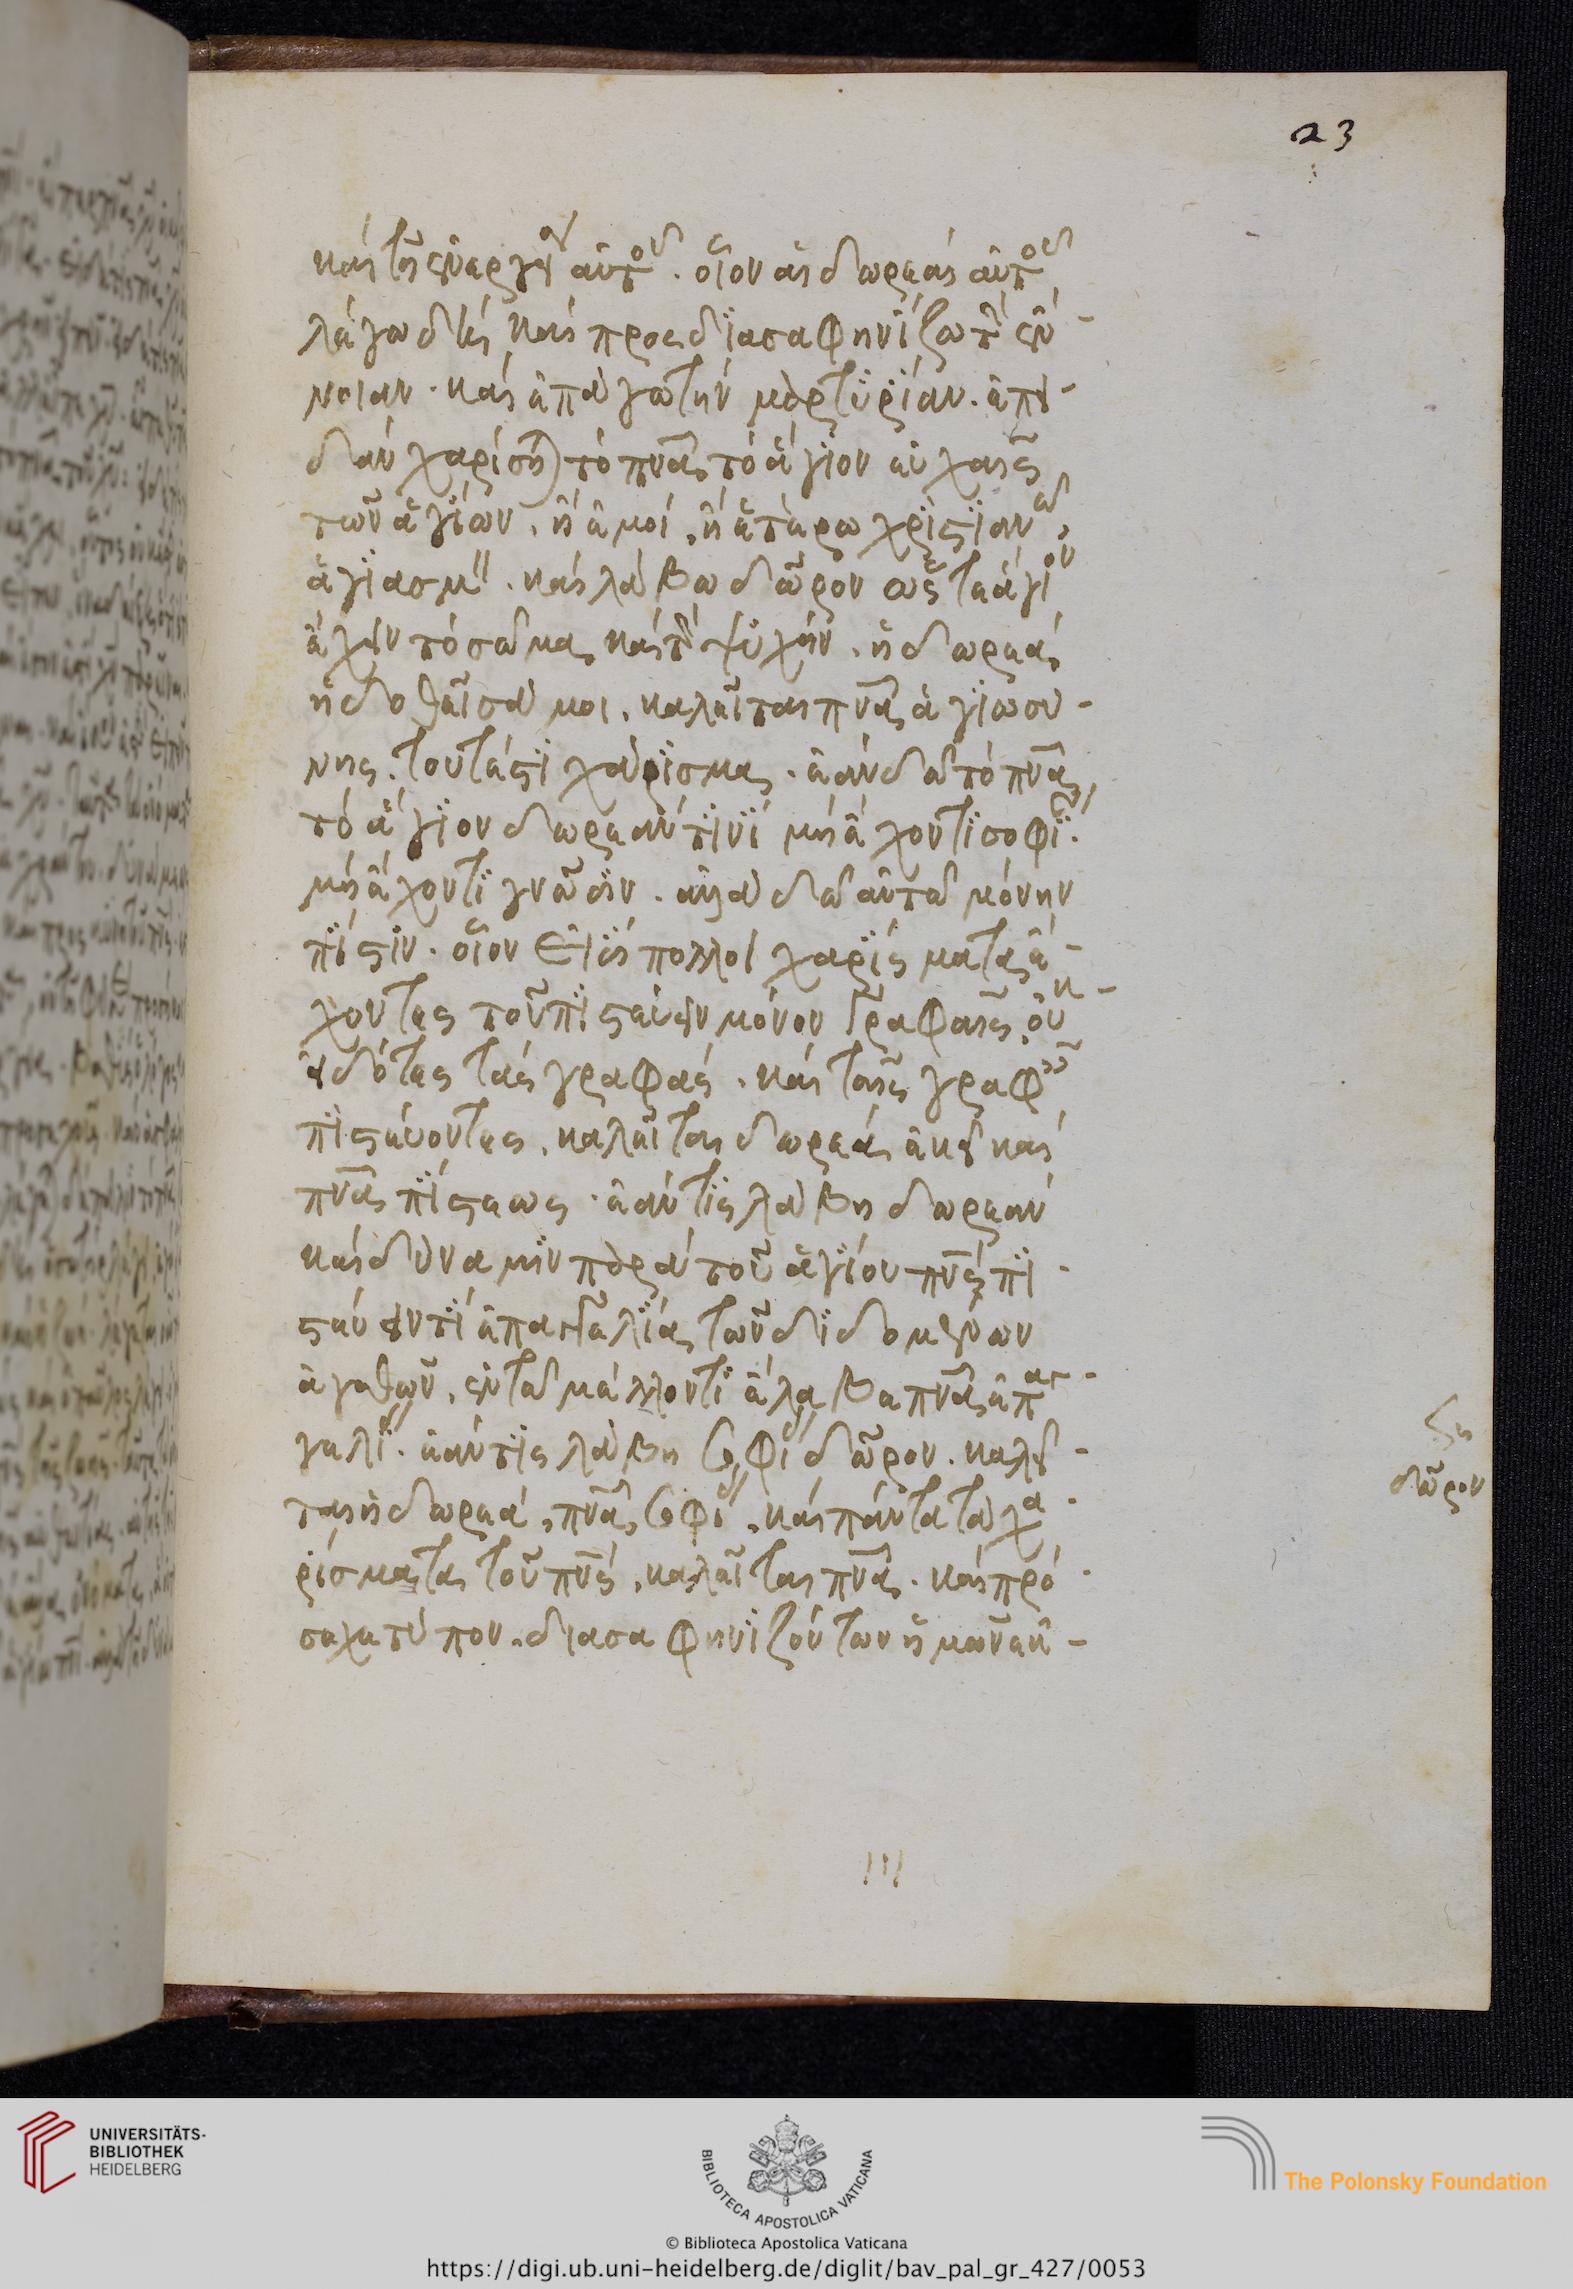 23
καὶ τῆς ἐνεργείας αὐτοῦ. οἷον αἱ δωρεαὶ αὐτοῦ
λέγω δὴ καὶ προσδιασαφηνίζω τὴν ἔν-
νοιαν. καὶ ἐπάγω τὴν μαρτυρίαν. ἐπει-
δὰν χαρίσηται τὸ πνα τὸ ἅγιον εὐχαῖς
τῶν ἁγίων, ἢ ἐμοὶ, ἢ ἑτέρω χριστιανῶ,
ἁγιασμὸν. καὶ λάβω δῶρον ὥστε ἅγιον
ἔχειν τὸ σῶμα καὶ τὴν ψυχήν. ἡ δωρεὰ
ἡ δοθεῖσά μοι, καλεῖται πνα ἁγιωσύ-
νης. τουτέστι χάρισμα. ἐὰν δῶ τὸ πνα
τὸ ἅγιον δωρεάν τινι μὴ ἔχοντι σοφίαν.
μὴ ἔχοντι γνῶσιν. ἀλλὰ δῶ αὐτῶ μόνην
πίστιν. οἷον εἰσὶ πολλοὶ χαρίσματα ἔ-
χοντες τοῦ πιστεύειν μόνον γραφαῖς. οὐκ
εἰδότες τὰς γραφάς. καὶ ταῖς γραφαῖς
πιστεύοντες, καλεῖται δωρεὰ ἐκεῖ καὶ
πνα πίστεως. ἐάν τις λάβη δωρεὰν
καὶ δύναμιν παρὰ τοῦ ἁγίου πνς πι-
στεύειν τῆ ἐπαγγελία τῶν διδομένων
ἀγαθῶν, ἐν τῶ μέλλοντι ἔλαβε πνα ἐπαγ-
γελίας. ἐάν τις λάβη σοφίας δῶρον. καλεῖ-
ται ἡ δωρεὰ, πνα σοφίας, καὶ πάντα τὰ χα-
ρίσματα τοῦ πνς, καλεῖται πνα. καὶ πρό-
σεχε τύπον. διασαφηνιζόντων ἡμῶν ἐκ-
δῶρον
UNIVERSITÄTS-
BIBLIOTHEK
HEIDELBERG
BIBLIOTECA APOSTOLICA VATICANA
The Polonsky Foundation
© Biblioteca Apostolica Vaticana
https://digi.ub.uni-heidelberg.de/diglit/bav_pal_gr_427/0053